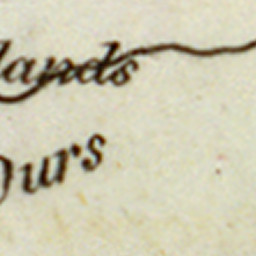 lands
Ours